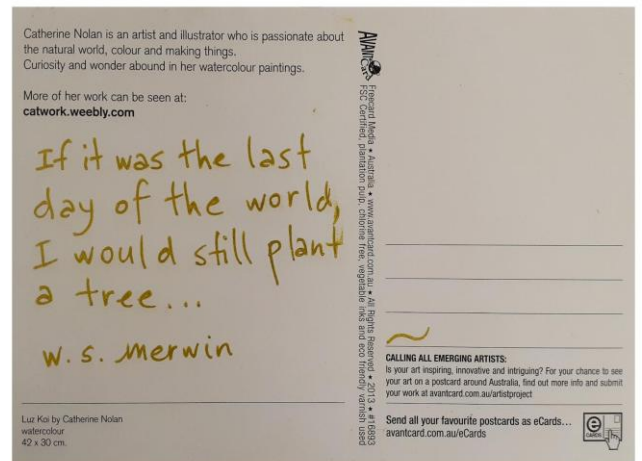 Catherine Nolan is an artist and illustrator who is passionate about
the natural world, colour and making things.
Curiosity and wonder abound in her watercolour paintings.
More of her work can be seen at:
catwork.weebly.com
If it was the last
day of the world,
I would still plant
a tree...
W. S. Merwin
Luz Koi by Catherine Nolan
watercolour
42 x 30 cm.
AVANT Card
Freecard Media • Australia • www.avantcard.com.au • All Rights Reserved • 2013 • #16893
FSC Certified, plantation pulp, chlorine free, vegetable inks and eco friendly varnish used
CALLING ALL EMERGING ARTISTS:
Is your art inspiring, innovative and intriguing? For your chance to see
your art on a postcard around Australia, find out more info and submit
your work at avantcard.com.au/artistproject
Send all your favourite postcards as eCards...
avantcard.com.au/eCards
e
CARDS